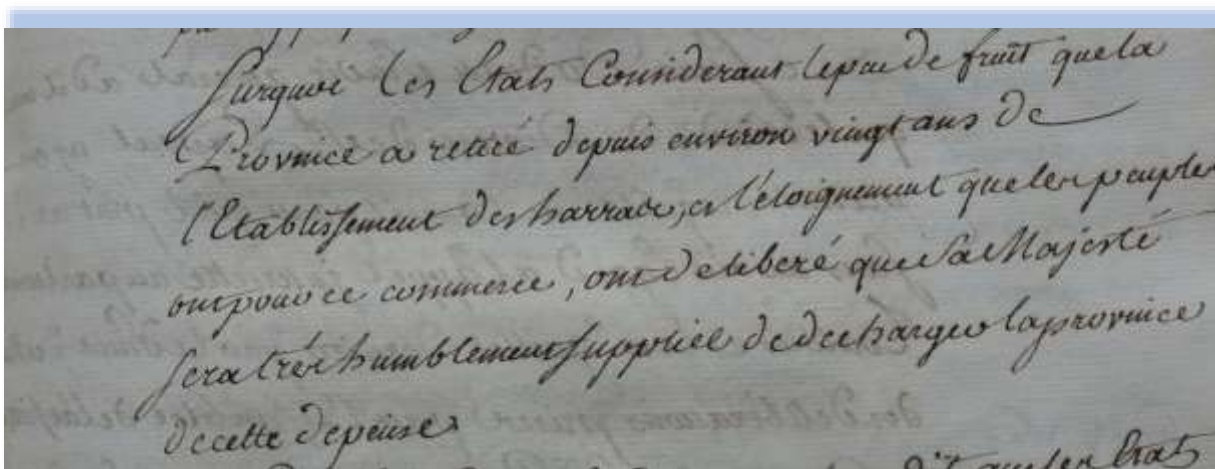 Surquoi les Etats Considerant lepeu de fruit que la
Province a retiré depuis environ vingt ans de
l'Etablissement des harras, et l'éloignement que les peuples
ont pour ce commerce, ont delibéré que Sa Majesté
sera très humblement suppliée de decharger la province
de cette depense
dit que les Etats